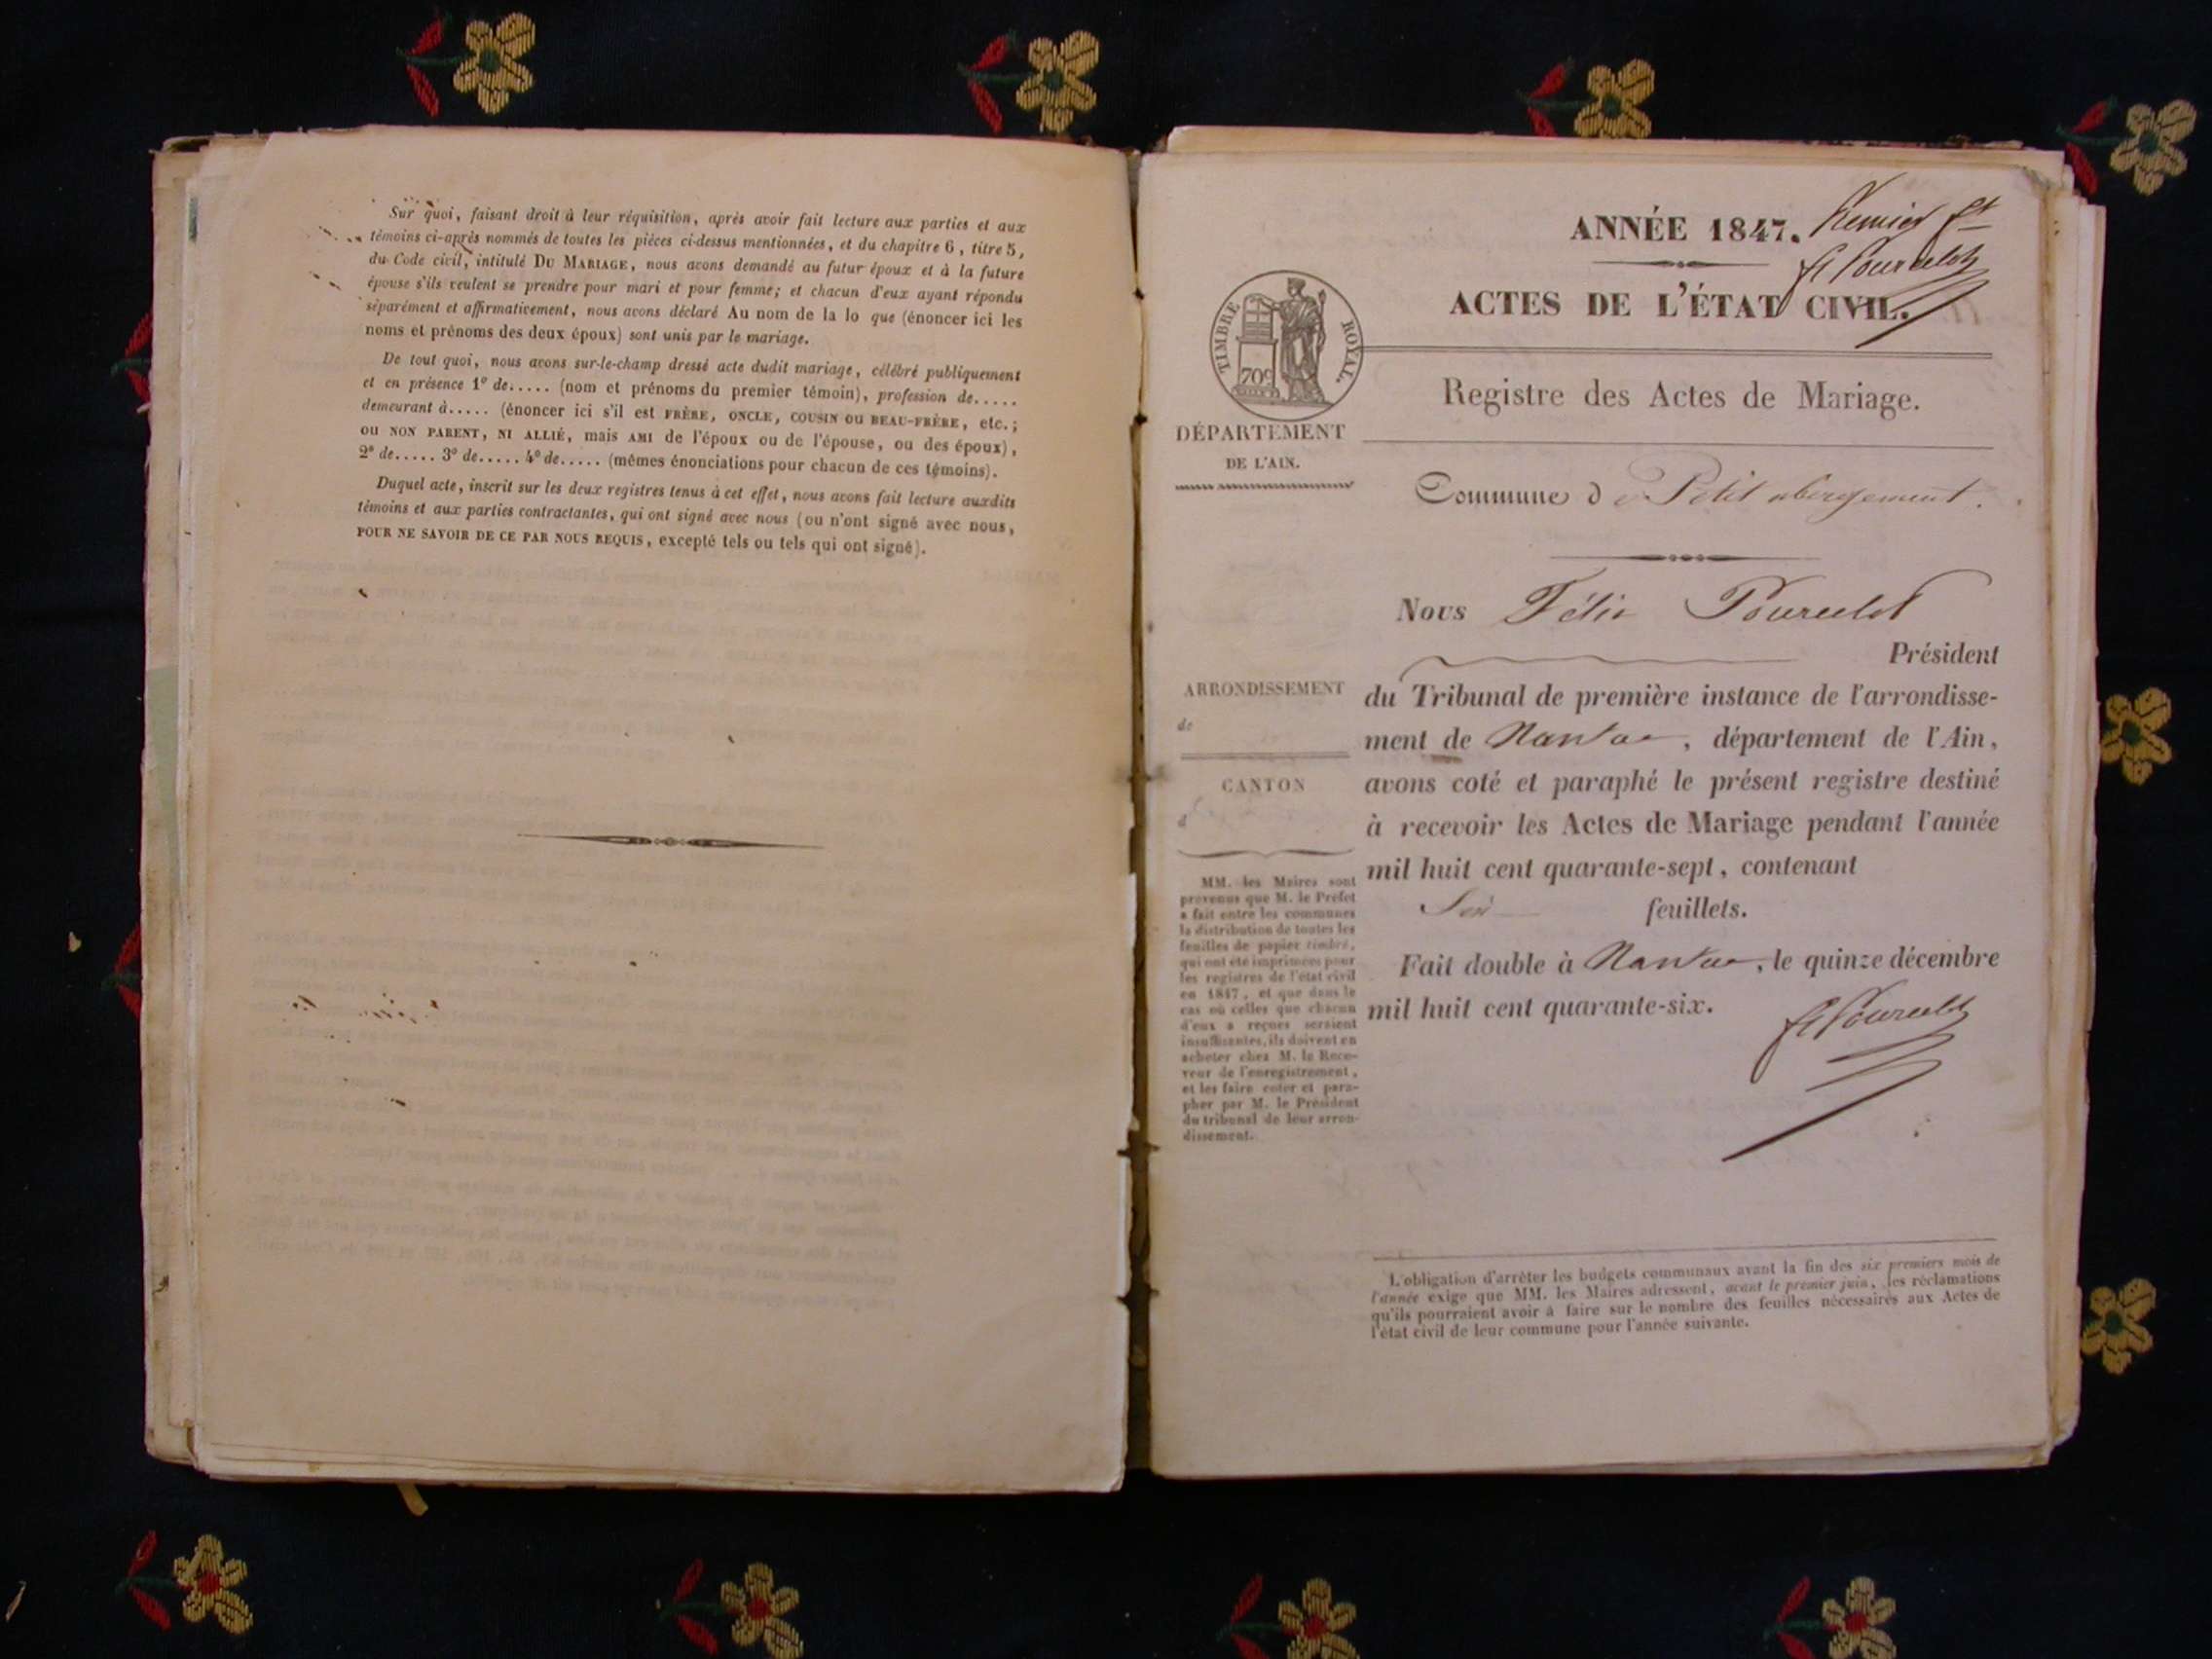 Sur quoi, faisant droit à leur réquisition, après avoir fait lecture aux parties et aux
témoins ci-après nommés de toutes les pièces ci-dessus mentionnées, et du chapitre 6, titre 5,
du Code civil, intitulé DU MARIAGE, nous avons demandé au futur époux et à la future
épouse s'ils veulent se prendre pour mari et pour femme; et chacun d'eux ayant répondu
séparément et affirmativement, nous avons déclaré Au nom de la lo que (énoncer ici les
noms et prénoms des deux époux) sont unis par le mariage.
De tout quoi, nous avons sur-le-champ dressé acte dudit mariage, célébré publiquement
et en présence 1° de..... (nom et prénoms du premier témoin), profession de.....
demeurant à..... (énoncer ici s'il est FRÈRE, ONCLE, COUSIN OU BEAU-FRÈRE, etc.;
OU NON PARENT, NI ALLIÉ, mais AMI de l'époux ou de l'épouse, ou des époux),
2° de..... 3° de..... 4° de..... (mêmes énonciations pour chacun de ces témoins).
Duquel acte, inscrit sur les deux registres tenus à cet effet, nous avons fait lecture auxdits
témoins et aux parties contractantes, qui ont signé avec nous (ou n'ont signé avec nous,
POUR NE SAVOIR DE CE PAR NOUS REQUIS, excepté tels ou tels qui ont signé).
ANNÉE 1847. Premier ft
F Pourcelot
ACTES DE L'ÉTAT CIVIL.
TIMBRE ROYAL.
70c
Registre des Actes de Mariage.
DÉPARTEMENT
DE L'AIN.
Commune de Petit abergement.
Nous Félix Pourcelot
Président
ARRONDISSEMENT
de
CANTON
d
du Tribunal de première instance de l'arrondisse-
ment de Nantua, département de l'Ain,
avons coté et paraphé le présent registre destiné
à recevoir les Actes de Mariage pendant l'année
mil huit cent quarante-sept, contenant
feuillets.
Fait double à Nantua, le quinze décembre
mil huit cent quarante-six.
F Pourcelot
MM. les Maires sont
prévenus que M. le Préfet
a fait entre les communes
la distribution de toutes les
feuilles de papier timbré,
qui ont été imprimées pour
les registres de l'état civil
en 1847, et que dans le
cas où celles que chacun
d'eux a reçues seraient
insuffisantes, ils doivent en
acheter chez M. le Rece-
veur de l'enregistrement,
et les faire coter et para-
pher par M. le Président
du tribunal de leur arron-
dissement.
L'obligation d'arrêter les budgets communaux avant la fin des six premiers mois de
l'année exige que MM. les Maires adressent, avant le premier juin, les réclamations
qu'ils pourraient avoir à faire sur le nombre des feuilles nécessaires aux Actes de
l'état civil de leur commune pour l'année suivante.